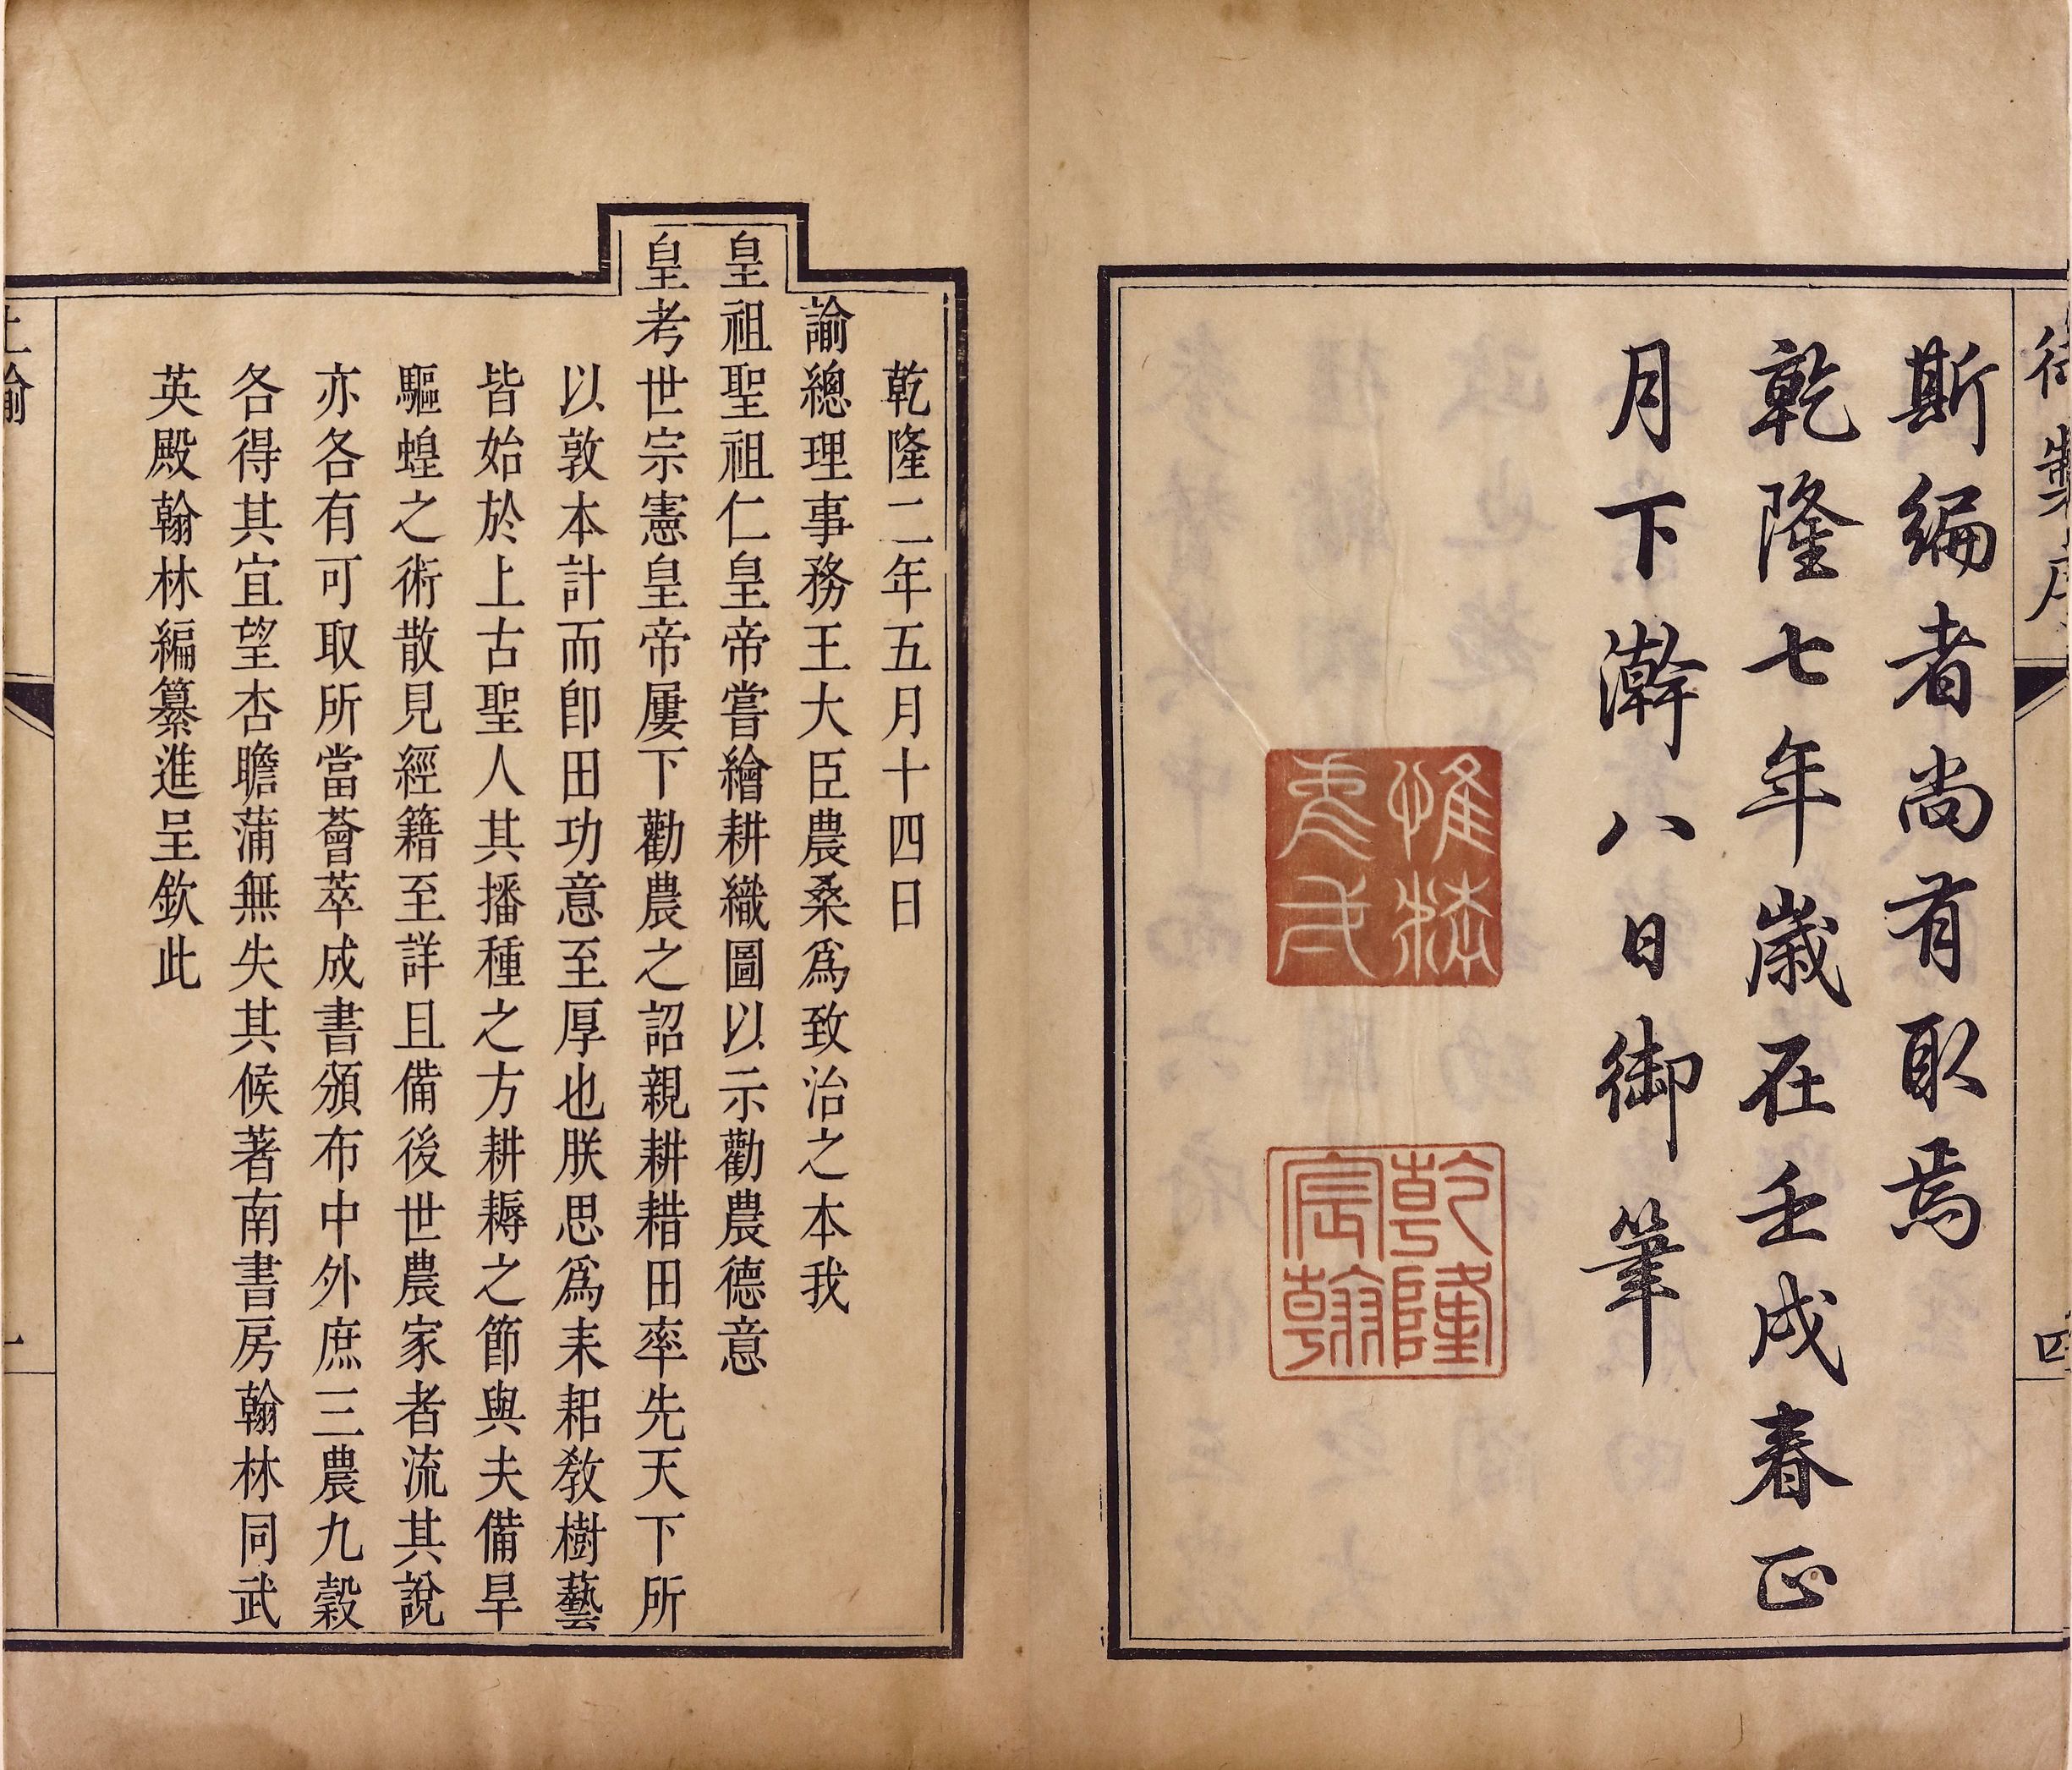 御製序
四
斯編者尚有取焉
乾隆七年歲在壬戌春正
月下澣八日御筆
惟精
惟一
乾隆
宸翰
乾隆二年五月十四日
諭總理事務王大臣農桑爲致治之本我
皇祖聖祖仁皇帝嘗繪耕織圖以示勸農德意
皇考世宗憲皇帝屢下勸農之詔親耕耤田率先天下所
以敦本計而卽田功意至厚也朕思爲耒耜敎樹藝
皆始於上古聖人其播種之方耕耨之節與夫備旱
驅蝗之術散見經籍至詳且備後世農家者流其說
亦各有可取所當薈萃成書頒布中外庶三農九穀
各得其宜望杏瞻蒲無失其候著南書房翰林同武
英殿翰林編纂進呈欽此
上諭
一